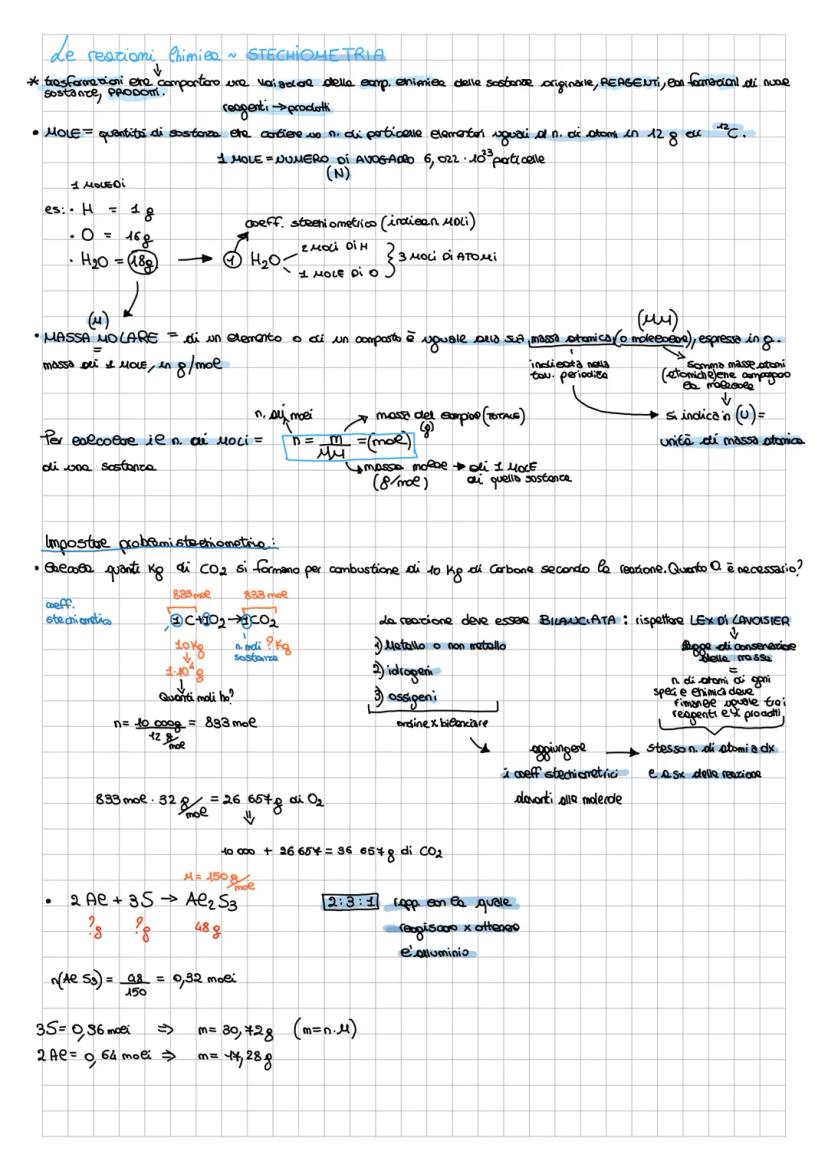 Le reazioni Chimica ~ STECHIOMETRIA
* trasformazioni che comportano una variazione della comp. chimica delle sostanze originarie, REAGENTI, con formazioni di nuove
sostanze, PRODOTTI.
reagenti → prodotti
• MOLE = quantità di sostanza che contiene un n. di particelle elementari uguali al n. di atomi in 12 g di ¹²C.
1 MOLE = NUMERO DI AVOGADRO 6,022 · 10²³ particelle
(N)
1 MOLE DI
es: • H = 1 g
• O = 16g
• H2O = 18g → 1 H2O
coeff. stechiometrico (indica n moli)
2 MOLI DI H
1 MOLE DI O
} 3 MOLI DI ATOMI
(M)
(MM)
• MASSA MOLARE = di un elemento o di un composto è uguale alla sua massa atomica (o molecolare), espressa in g.
=
massa di 1 MOLE, in g/mole
indicata nella
tav. periodica
somma masse atomi
(atomiche) che compongono
la molecola
si indica in (U) =
unità di massa atomica
n. di moli
massa del campione (TOTALE)
(g)
Per calcolare il n. di moli =
di una sostanza
n = m/MM = (mol)
massa molare → di 1 MOLE
(g/mol) di quella sostanza
Impostare problemi stechiometrici:
• Calcola quanti Kg di CO2 si formano per combustione di 10 Kg di Carbone secondo la reazione. Quanto O è necessario?
833 mol 833 mol
coeff.
stechiometrico
1C+1O2→1CO2
10Kg
n. moli ? Kg
sostanza
1·10⁴g
Quanti moli ho?
n = 10 000g / 12 g/mol = 833 mol
La reazione deve essere BILANCIATA : rispettare LEX DI LAVOISIER
1) Metallo o non metallo
2) idrogeni
3) ossigeni
ordine x bilanciare
legge di conservazione
della massa
=
n. di atomi di ogni
specie chimica deve
rimanere uguale tra i
reagenti e i prodotti
aggiungere → stesso n. di atomi a dx
i coeff stechiometrici e a sx della reazione
davanti alle molecole
833 mol · 32 g/mol = 26 657g di O2
⇓
10 000 + 26 657 = 36 657 g di CO2
M = 150 g/mol
• 2 Al + 3S → Al2 S3
?g ?g 48 g
2:3:1 rapp con la quale
reagiscono x ottenere
l'alluminio
n(Al S3) = 48/150 = 0,32 moli
3S = 0,96 moli ⇒ m = 30,72 g (m=n·M)
2 Al = 0,64 moli ⇒ m = 17,28 g